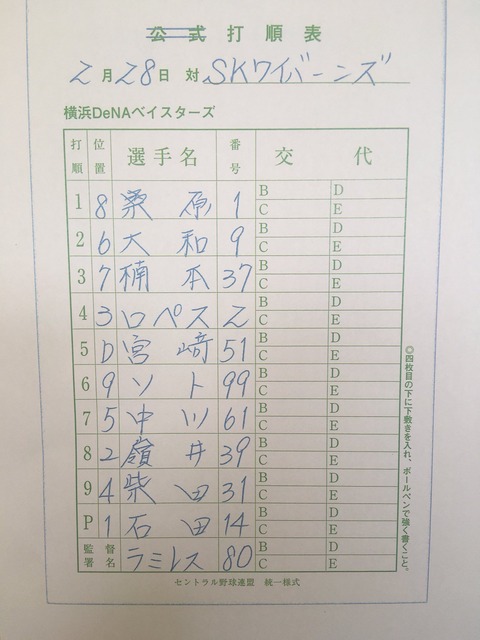 公式打順表
2月28日 対 SKワイバーンズ
横浜DeNAベイスターズ
打順 位置 選手名 番号 交代
1 8 桑原 1 B D C E
2 6 大和 9 B D C E
3 7 楠本 37 B D C E
4 3 ロペス 2 B D C E
5 D 宮﨑 51 B D C E
6 9 ソト 99 B D C E
7 5 中川 61 B D C E
8 2 嶺井 39 B D C E
9 4 柴田 31 B D C E
P 1 石田 14 B D C E
監督署名 ラミレス 80 B D C E
◎四枚目の下に下敷きを入れ、ボールペンで強く書くこと。
セントラル野球連盟 統一様式